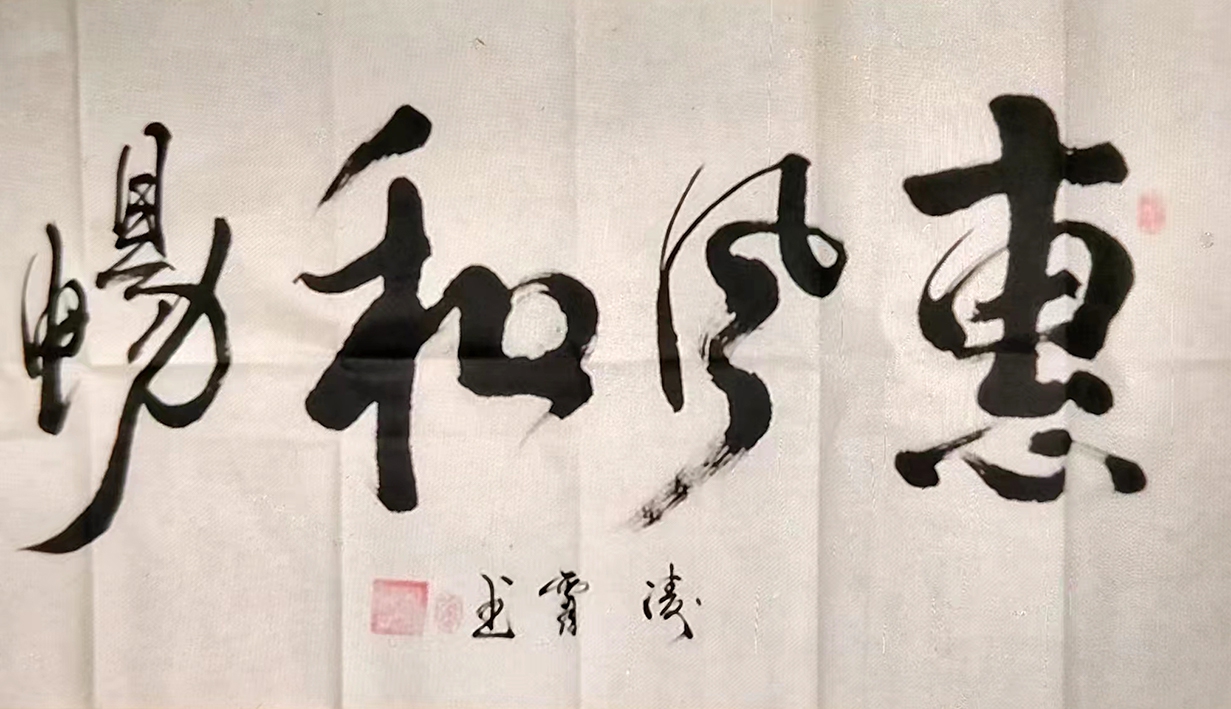 惠风和畅
凌霄书